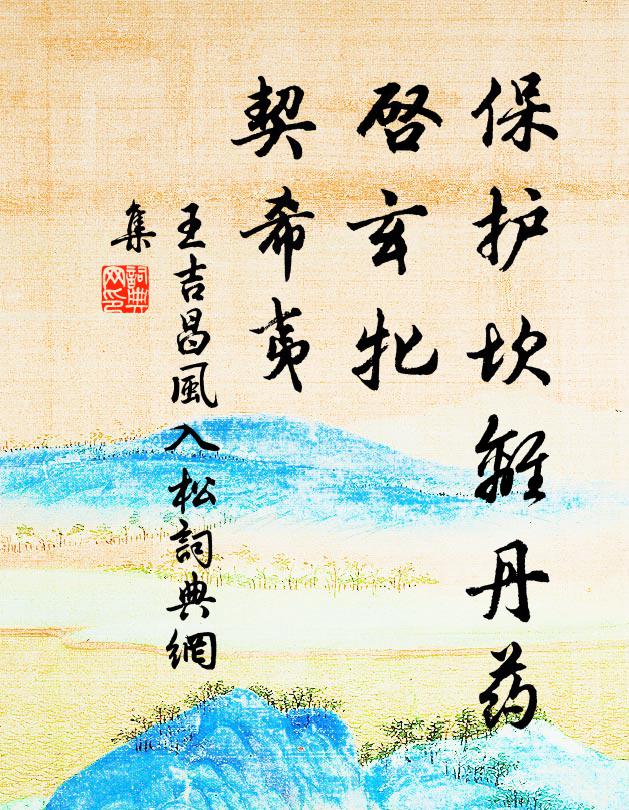 保护坎離丹药
启玄牝
契希夷
王吉昌風入松詞典網
集
詞典
网印